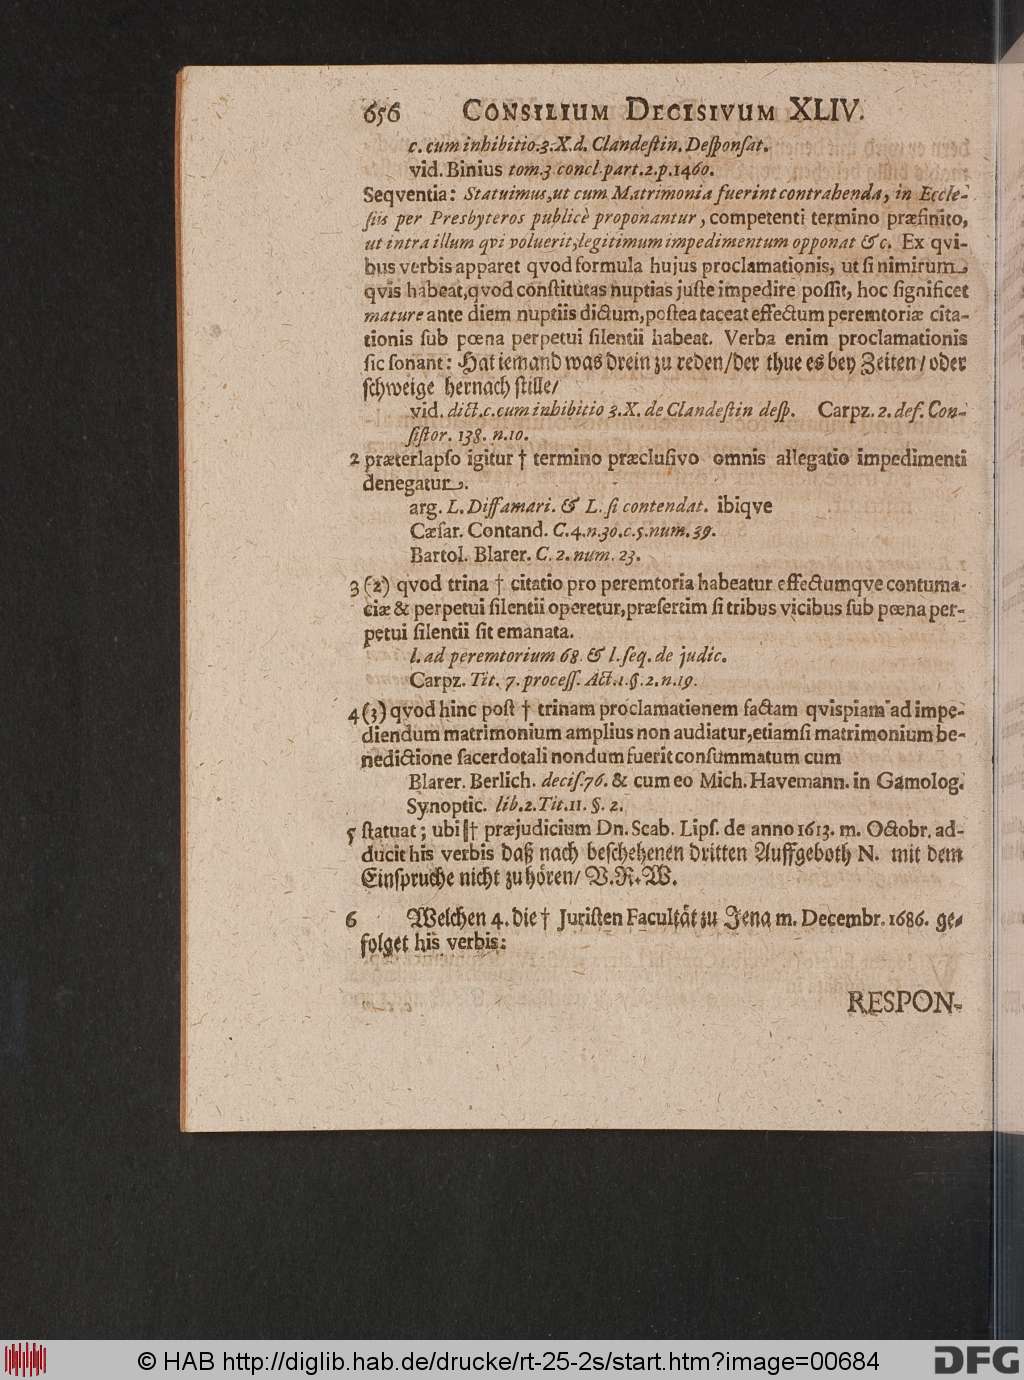 656 CONSILIUM DECISIVUM XLIV.
c. cum inhibitio.3.X.d. Clandeſtin. Deſponſat.
vid. Binius tom.3 concl.part.2.p.1460.
Seqventia: Statuimus,ut cum Matrimonia fuerint contrahenda, in Eccle-
ſiis per Presbyteros publicè proponantur, competenti termino præfinito,
ut intra illum qvi voluerit,legitimum impedimentum opponat &c. Ex qvi-
bus verbis apparet qvod formula hujus proclamationis, ut ſi nimirum
qvis habeat,qvod conſtitutas nuptias juſte impedire poſſit, hoc ſignificet
mature ante diem nuptiis dictum,poſtea taceat effectum peremtoriæ cita-
tionis ſub pœna perpetui ſilentii habeat. Verba enim proclamationis
ſic ſonant: Hat iemand was drein zu reden/der thue es bey Zeiten/ oder
ſchweige hernach ſtille/
vid. dict.c.cum inhibitio 3.X. de Clandeſtin deſp. Carpz. 2. def. Con-
ſiſtor. 138. n.10.
2 præterlapſo igitur † termino præcluſivo omnis allegatio impedimenti
denegatur.
arg. L. Diffamari. & L. ſi contendat. ibiqve
Cæſar. Contand. C.4.n.30.c.5.num.39.
Bartol. Blarer. C. 2. num. 23.
3 (2) qvod trina † citatio pro peremtoria habeatur effectumqve contuma-
ciæ & perpetui ſilentii operetur,præſertim ſi tribus vicibus ſub pœna per-
petui ſilentii ſit emanata.
l. ad peremtorium 68. & l.ſeq. de judic.
Carpz. Tit. 7. proceſſ. Act.1.§.2.n.19.
4 (3) qvod hinc poſt † trinam proclamationem factam qvispiam ad impe-
diendum matrimonium amplius non audiatur,etiamſi matrimonium be-
nedictione ſacerdotali nondum fuerit conſummatum cum
Blarer. Berlich. deciſ.76. & cum eo Mich. Havemann. in Gamolog.
Synoptic. lib.2.Tit.11. §. 2.
5 ſtatuat; ubi † præjudicium Dn. Scab. Lipſ. de anno 1613. m. Octobr. ad-
ducit his verbis daß nach beſchehenen dritten Auffgeboth N. mit dem
Einſpruche nicht zu hören/ V.R.W.
6 Welchen 4. die † Juriſten Facultät zu Jena m. Decembr. 1686. ge-
folget his verbis:
RESPON-
© HAB http://diglib.hab.de/drucke/rt-25-2s/start.htm?image=00684
DFG